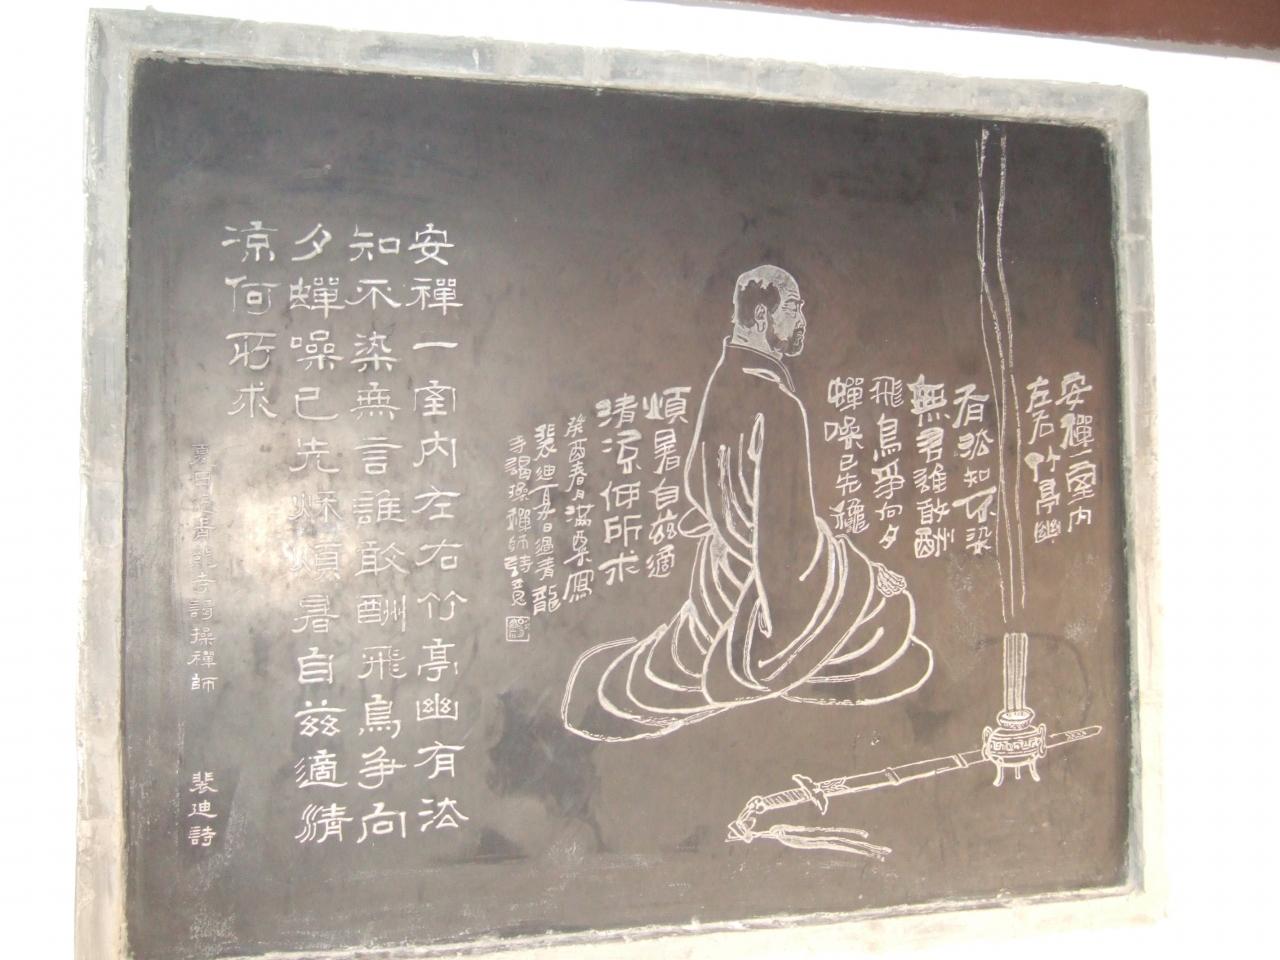 安禪一室内
左右竹亭幽
有法知不染
無言誰敢酬
飛鳥爭向夕
蟬噪已先穐
煩暑自兹適
清涼何所求
癸酉春月滿寫
裴迪夏日過青龍
寺謁操禪師詩意
安禪一室内左右竹亭幽有法
知不染無言誰敢酬飛鳥争向
夕蟬噪已先秌煩暑自兹適清
凉何所求
夏日過青龍寺謁操禪師 裴迪詩